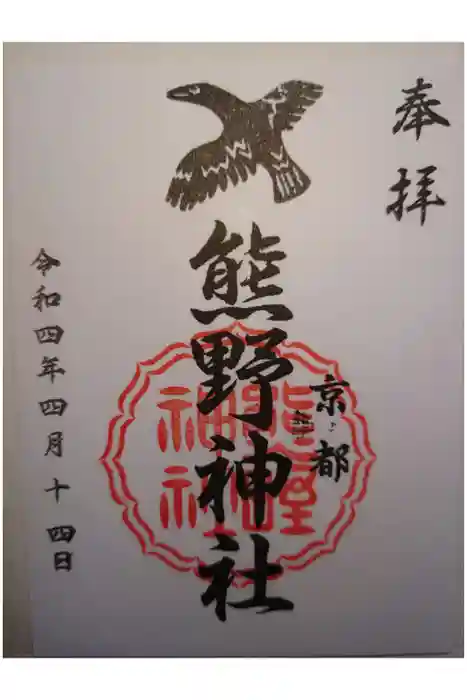 奉拝
京都
熊野神社
令和四年四月十四日